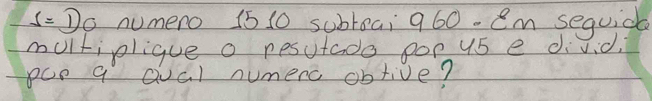 1= Do numero 1510 subtrai 960. Em seguida
multiplique o resutado por 45 e dividi
por 9 qual numero obtive?